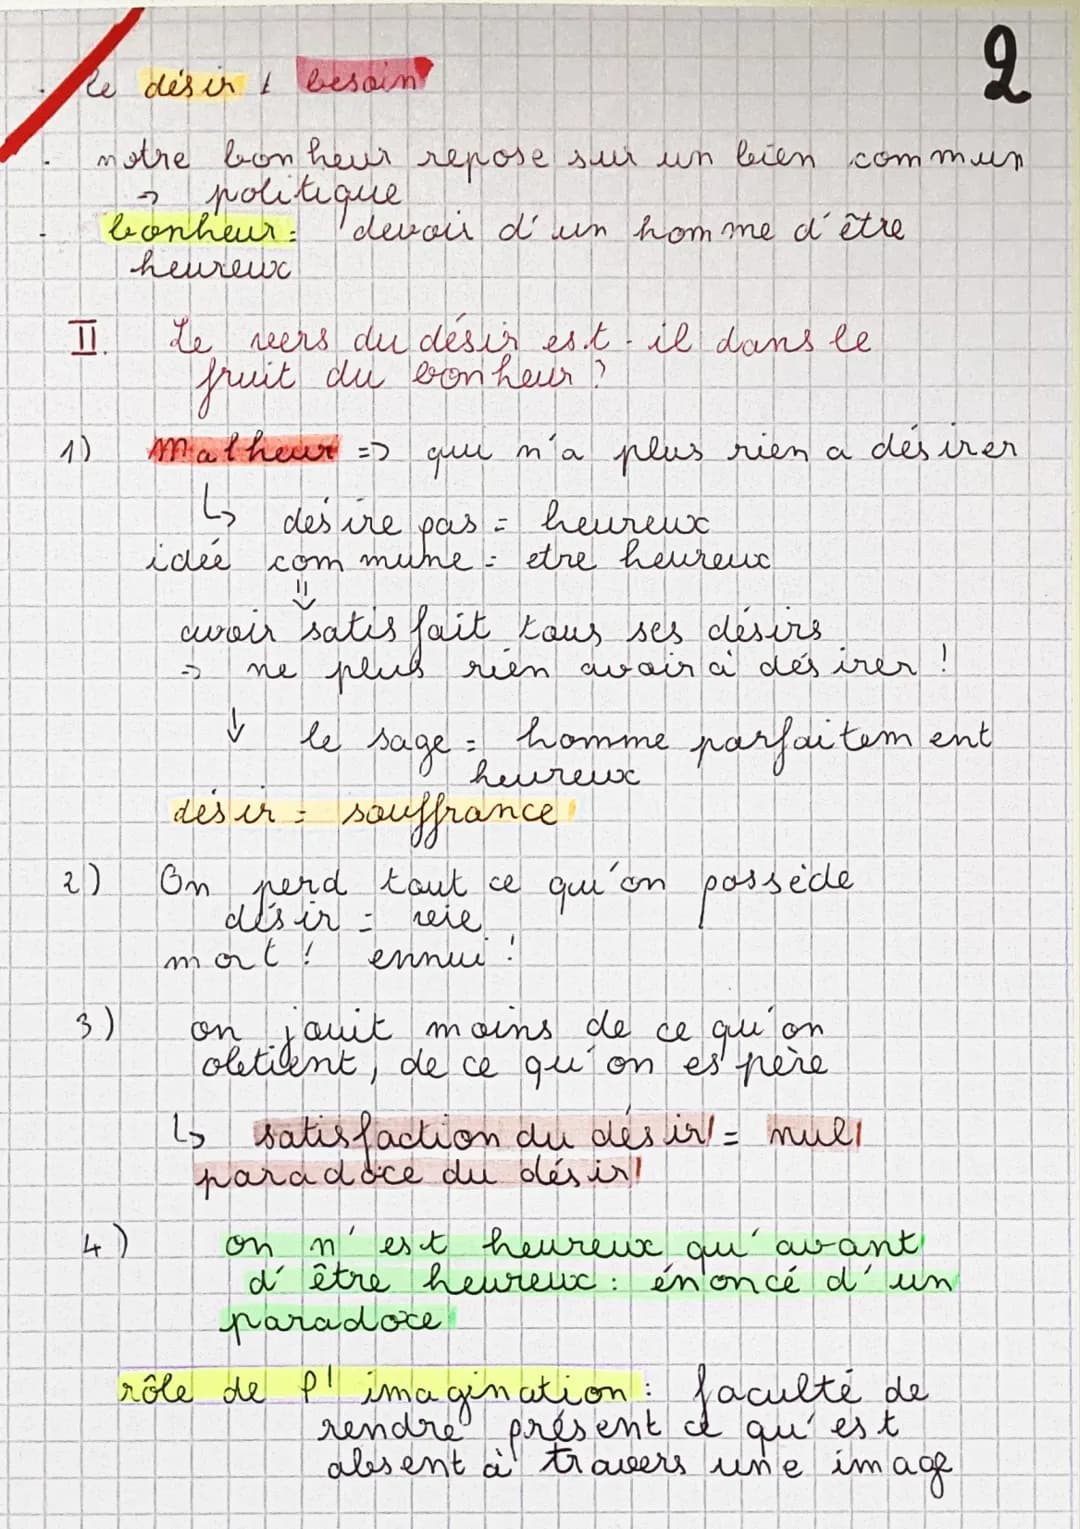 2
. le désir / besoin
. notre bonheur repose sur un bien commun
→ politique
. bonheur : devoir d'un homme d'être
heureux
II. Le vers du désir est-il dans le
fruit du bonheur ?
1) Malheur => qui n'a plus rien a désirer
↳ desire pas = heureux
idée commune = etre heureux
⇓
avoir satisfait tous ses désirs
=> ne plus rien avoir à désirer !
↓ le sage = homme parfaitement
heureux
désir = souffrance
2) On perd tout ce qu'on possède
désir = vie
mort ! ennui !
3) on jouit moins de ce qu'on
obtient, de ce qu'on espère
↳ satisfaction du désir = nul
paradoxe du désir
4) on n'est heureux qu'avant
d'être heureux : énoncé d'un
paradoxe
rôle de l'imagination : faculté de
rendre présent ce qu'est
absent à travers une image